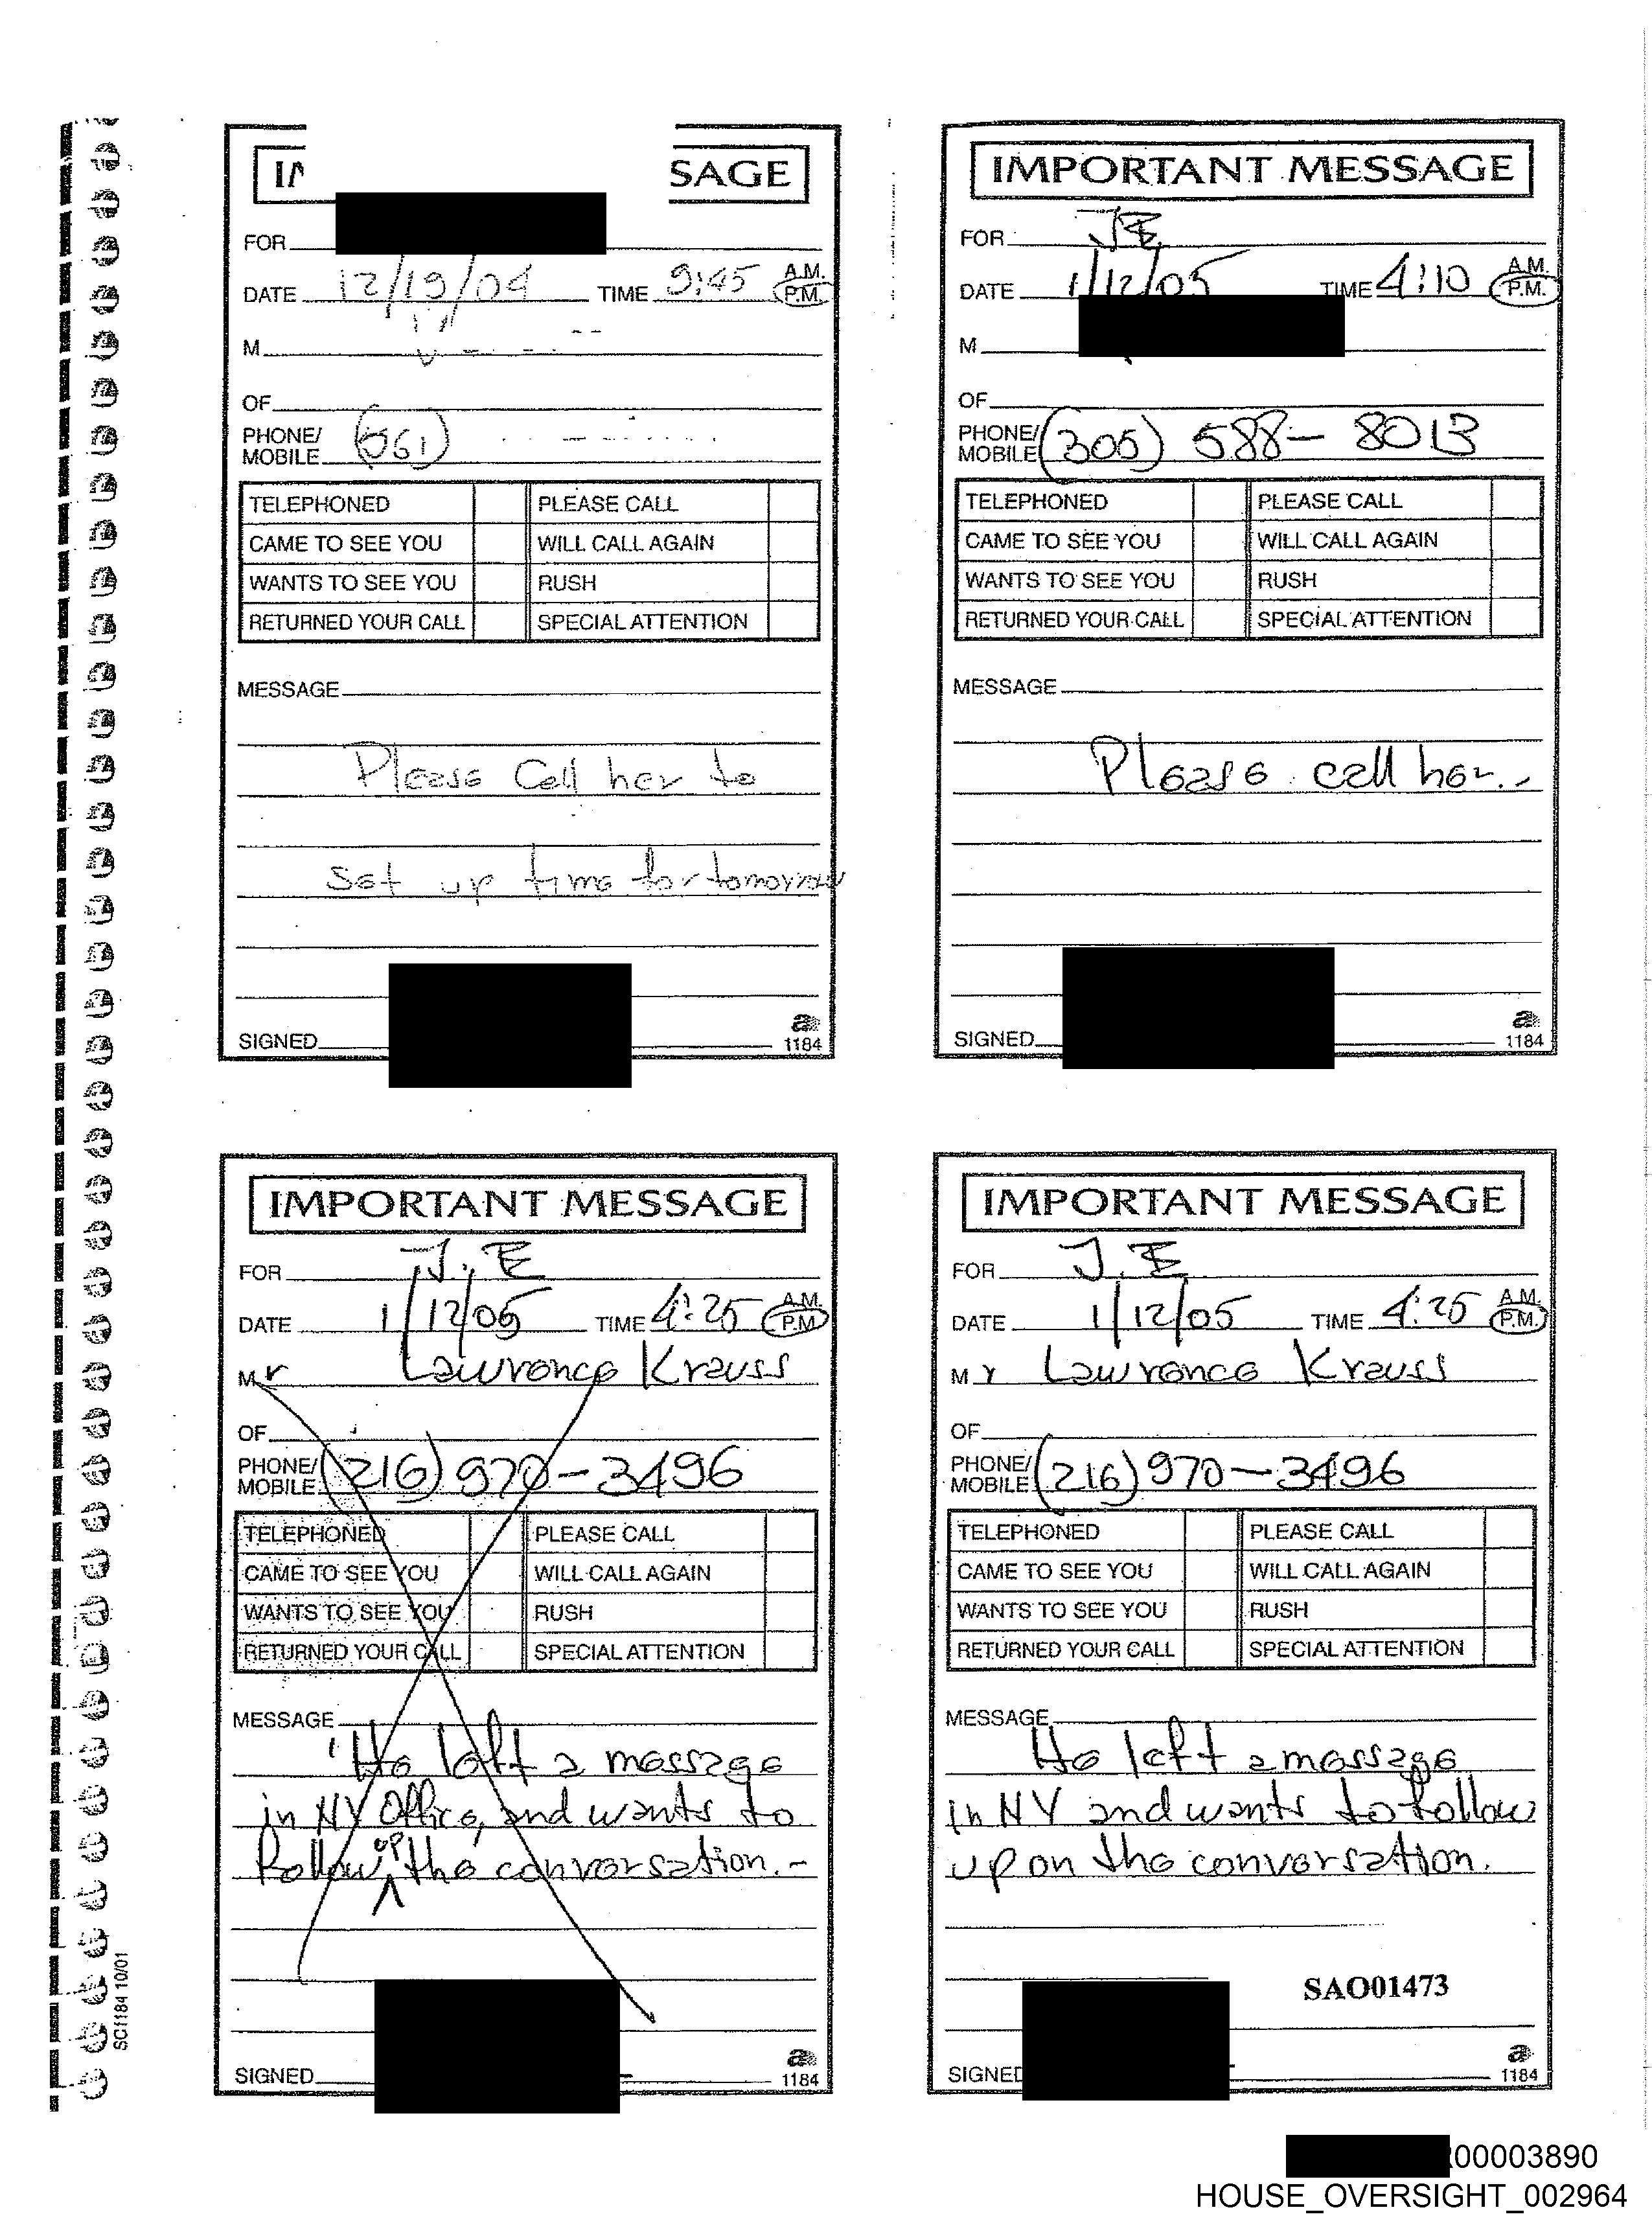 SAGE
FOR
DATE 12/19/04 TIME 9:45 A.M. P.M.
M
OF
PHONE/ MOBILE (561)
TELEPHONED PLEASE CALL
CAME TO SEE YOU WILL CALL AGAIN
WANTS TO SEE YOU RUSH
RETURNED YOUR CALL SPECIAL ATTENTION
MESSAGE
Please Call her to
Set up time for tomorrow
SIGNED
1184
IMPORTANT MESSAGE
FOR JE
DATE 1/12/05 TIME 4:10 A.M. P.M.
M
OF
PHONE/ MOBILE (305) 588-8013
TELEPHONED PLEASE CALL
CAME TO SEE YOU WILL CALL AGAIN
WANTS TO SEE YOU RUSH
RETURNED YOUR CALL SPECIAL ATTENTION
MESSAGE
Please call her.-
SIGNED
1184
IMPORTANT MESSAGE
FOR J.E
DATE 1/12/05 TIME 4:25 A.M. P.M.
Mr Lawrence Krauss
OF
PHONE/ MOBILE (216) 970-3496
TELEPHONED PLEASE CALL
CAME TO SEE YOU WILL CALL AGAIN
WANTS TO SEE YOU RUSH
RETURNED YOUR CALL SPECIAL ATTENTION
MESSAGE
He left a message
in NY Office, and wants to
follow up the conversation.-
SIGNED
1184
IMPORTANT MESSAGE
FOR J.E
DATE 1/12/05 TIME 4:25 A.M. P.M.
Mr Lawrence Krauss
OF
PHONE/ MOBILE (216) 970-3496
TELEPHONED PLEASE CALL
CAME TO SEE YOU WILL CALL AGAIN
WANTS TO SEE YOU RUSH
RETURNED YOUR CALL SPECIAL ATTENTION
MESSAGE
He left a message
in NY and wants to follow
up on the conversation.
SAO01473
SIGNED
1184
SC1184 10/01
00003890
HOUSE_OVERSIGHT_002964